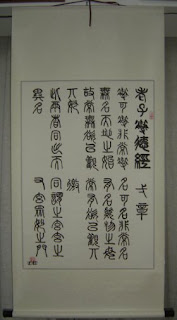 老子道德經 弌章
道可道非常道 名可名非常名
無名天地之始 有名萬物之母
故常無欲以觀 常有欲以觀其
其妙 徼
此兩者同出而 同謂之玄玄之
異名 又玄眾妙之門